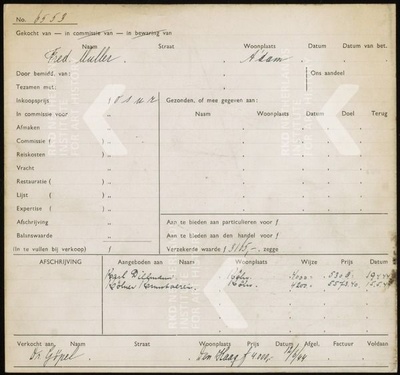 No. 6553
Gekocht van — in commissie van — in bewaring van
Naam Straat Woonplaats Datum Datum van bet.
Fred. Muller. A'dam
Door bemidd. van: Ons aandeel
Tezamen met:
Inkoopsprijs f Gezonden, of mee gegeven aan:
In commissie voor „ Naam Woonplaats Datum Doel Terug
Afmaken „
Commissie ( ) „
Reiskosten „
Vracht „
Restauratie ( ) „
Lijst ( ) „
Expertise ( ) „
Afschrijving „ Aan te bieden aan particulieren voor f
Balanswaarde „ Aan te bieden aan den handel voor f
(In te vullen bij verkoop) f Verzekerde waarde f , zegge
AFSCHRIJVING Aangeboden aan Woonplaats Wijze Prijs Datum
Naam
Karl Köln
Kölner Kunstverein Köln 4200.-
Verkocht aan, Naam Straat Woonplaats Prijs Datum Afgel. Factuur Voldaan
Dr. Göpel Den Haag f 4000,-